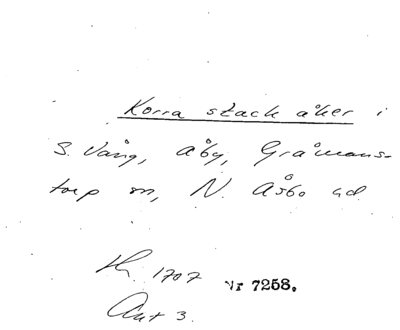 Korra stack åker i
S. Vång, Åby, Gråmans-
torp sn, N. Åsbo hd
Kr. 1707 Nr 7258.
Akt 3.